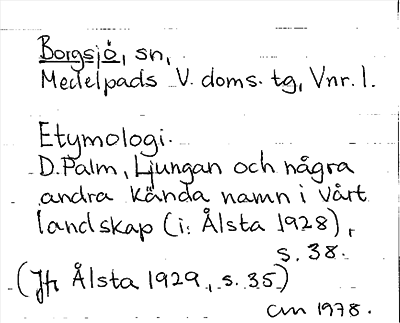 Borgsjö, sn,
Medelpads V. doms. tg, Vnr. l.
Etymologi.
D. Palm, Ljungan och några
andra kända namn i vårt
landskap (i: Ålsta 1928),
s. 38.
(Jfr Ålsta 1929, s. 35)
1978.